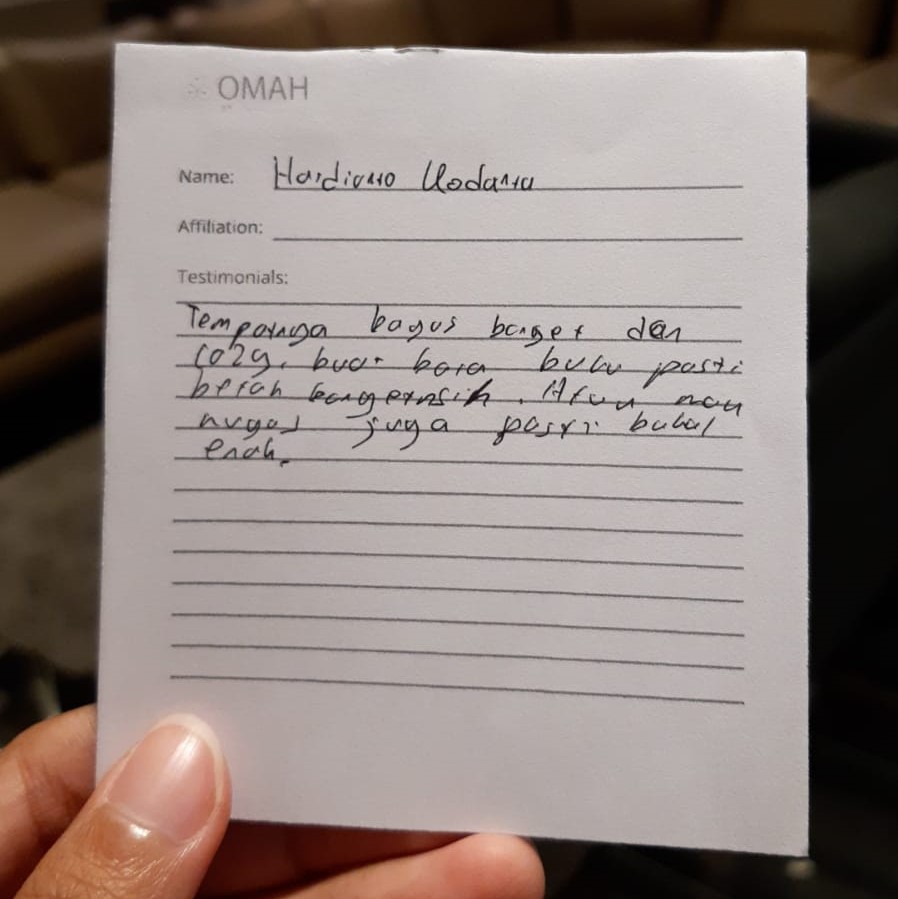 OMAH
Name: Hardiono
Affiliation:
Testimonials:
Tempatnya bagus banget dan
cozy. buat baca buku pasti
betah bangetnsih. Atau mau
nugas juga pasti bakal
enak.